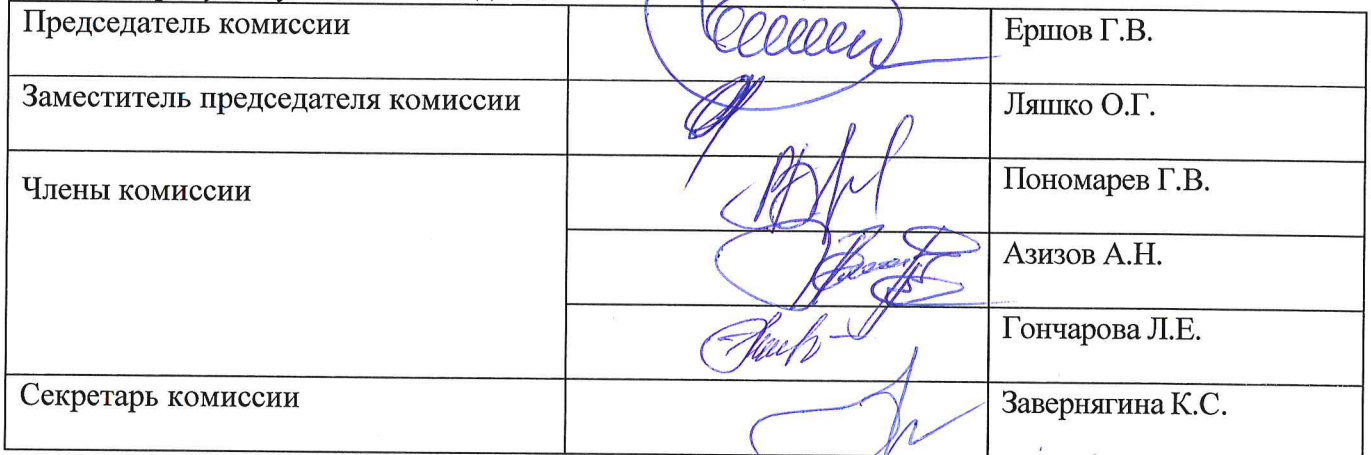 Председатель комиссии Ершов Г.В.
Заместитель председателя комиссии Ляшко О.Г.
Члены комиссии Пономарев Г.В.
Азизов А.Н.
Гончарова Л.Е.
Секретарь комиссии Завернягина К.С.